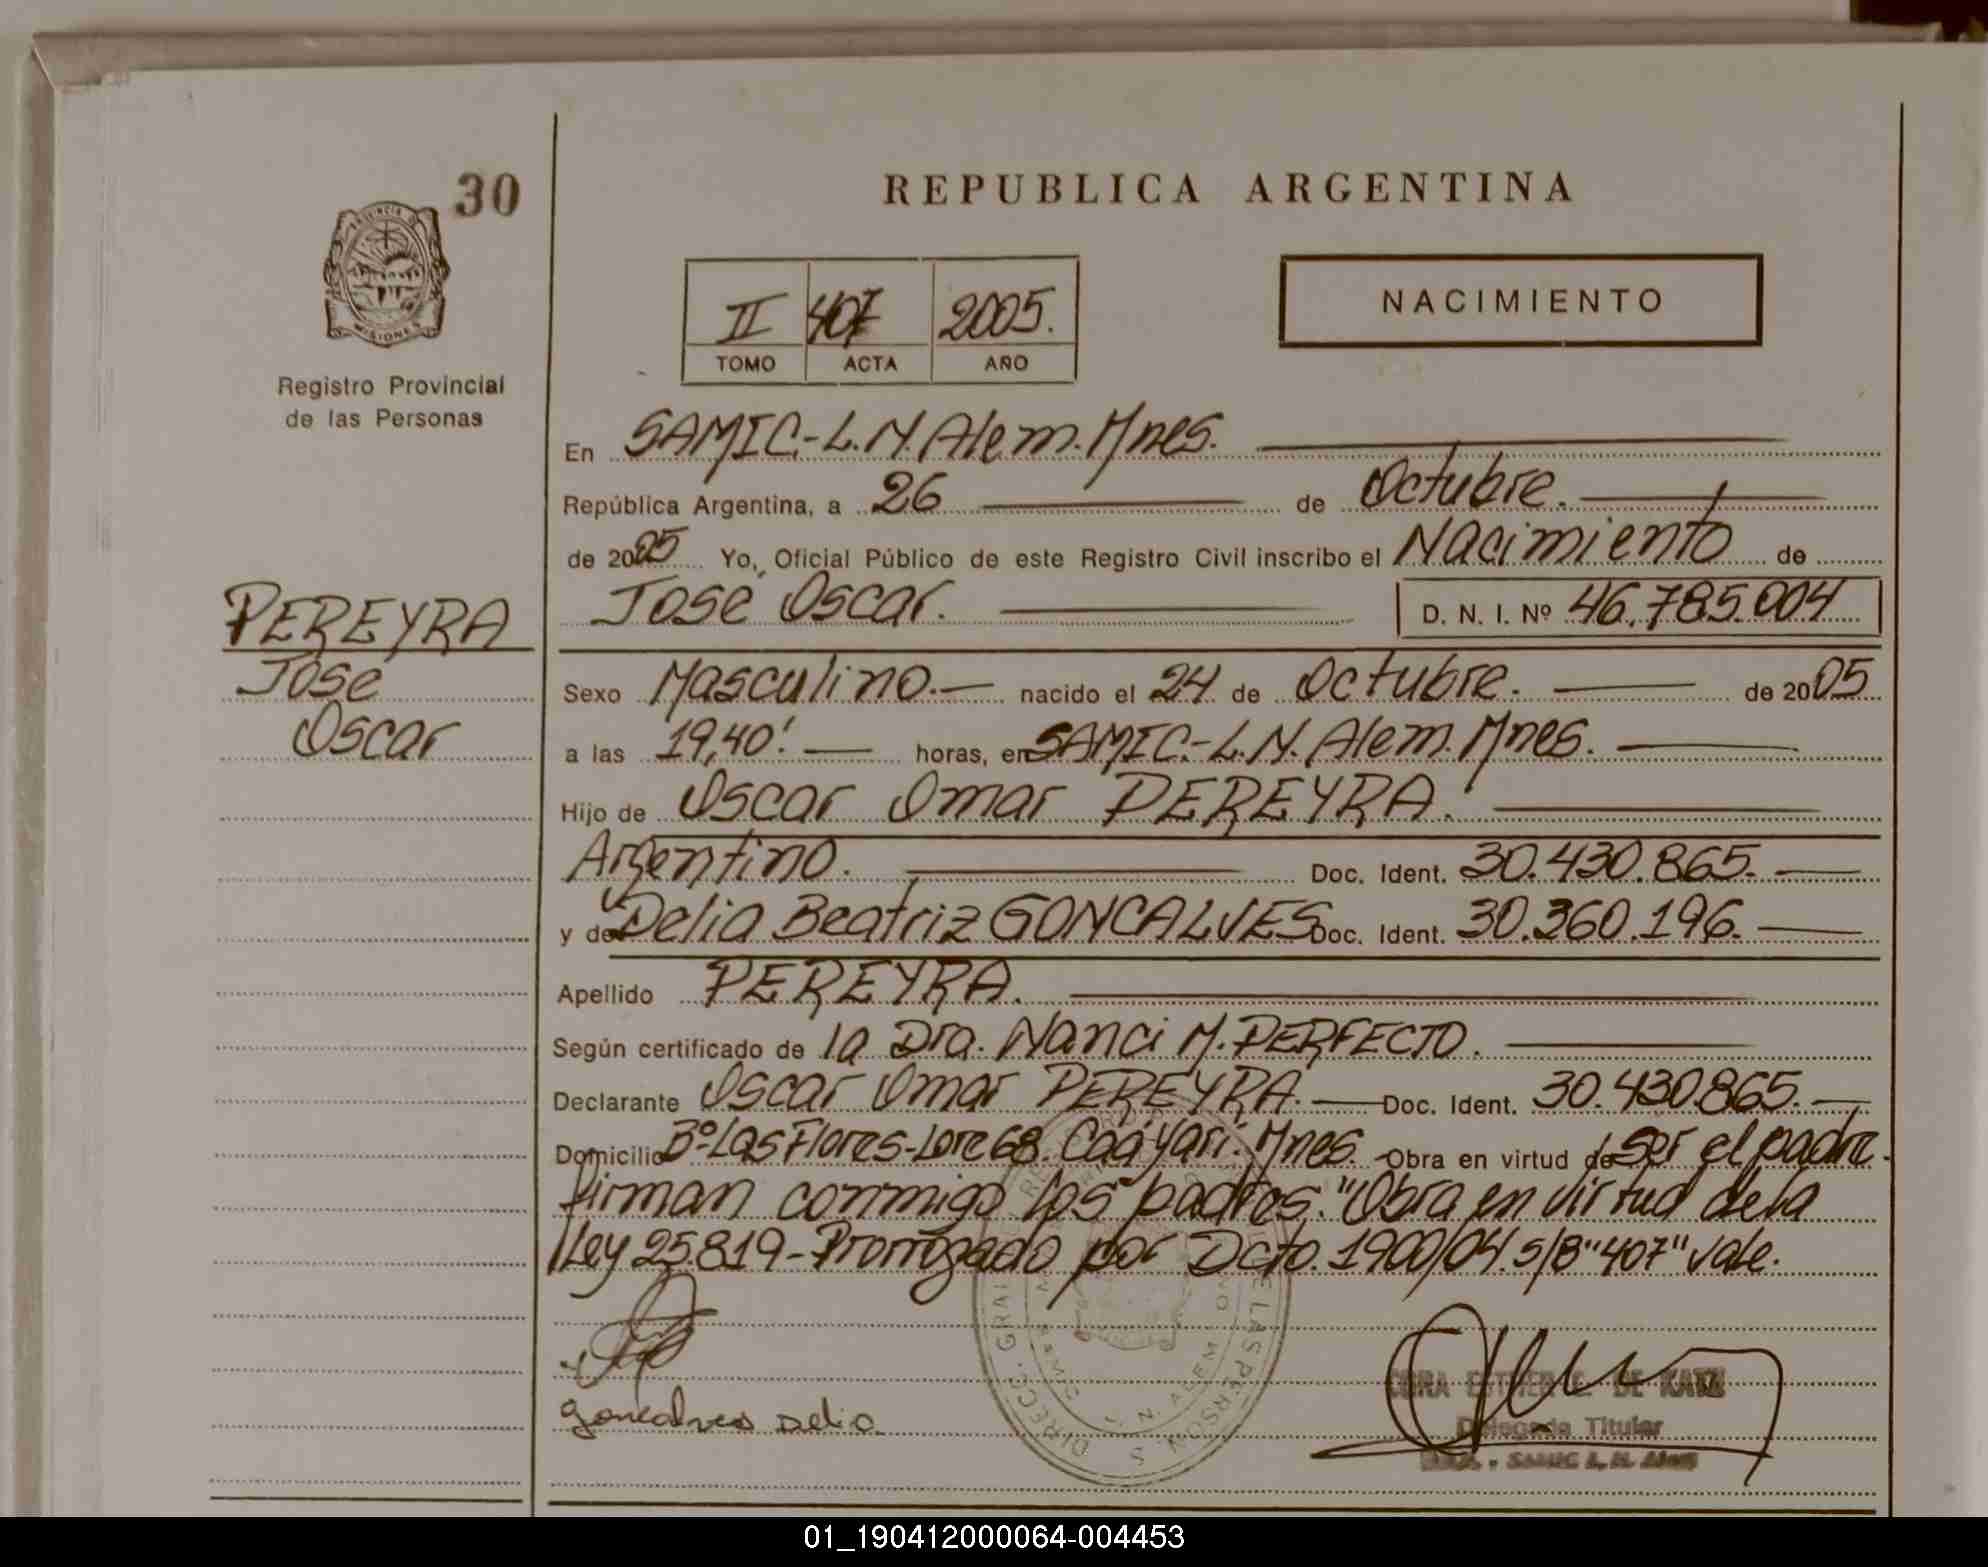 30
REPUBLICA ARGENTINA
PROVINCIA DE
MISIONES
Registro Provincial
de las Personas
II 407 2005.
TOMO ACTA AÑO
NACIMIENTO
En SAMIC.-L.N.Alem.Mnes.
República Argentina, a 26 de Octubre.
de 2005 Yo, Oficial Público de este Registro Civil inscribo el Nacimiento de
José Oscar. D. N. I. Nº 46.785.004
PEREYRA
José
Oscar
Sexo Masculino.- nacido el 24 de Octubre. de 2005
a las 19,40'. horas, en SAMIC.-L.N.Alem.Mnes.
Hijo de Oscar Omar PEREYRA.
Argentino. Doc. Ident. 30.430.865.
y de Delia Beatriz GONCALVES Doc. Ident. 30.360.196.
Apellido PEREYRA.
Según certificado de la Dra. Nanci M. PERFECTO.
Declarante Oscar Omar PEREYRA. Doc. Ident. 30.430.865.
Domicilio Bº-Las Flores-Lote 68. Caá Yarí. Mnes. Obra en virtud de ser el padre.
firman conmigo los padres. "Obra en virtud de la
Ley 25.819-Prorrogado por Dcto. 1900/04. s/B "407" vale.
goncalves Delia
DE KATZ
Delegada Titular
SAMIC L. N. Alem
01_190412000064-004453